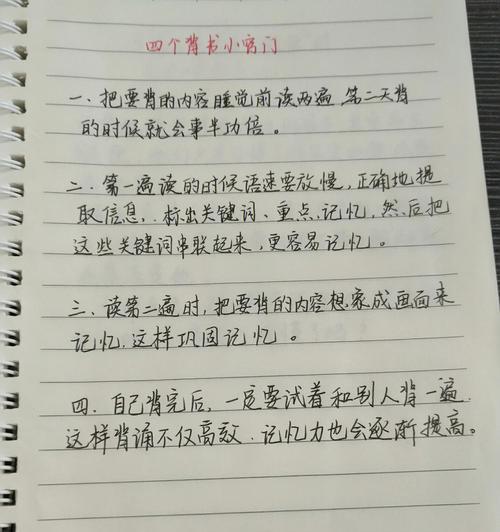 四个背书小窍门
一、把要背的内容睡觉前读两遍,第二天背
的时候就会事半功倍。
二、第一遍读的时候语速要放慢,正确地提
取信息,标出关键词、重点记忆,然后把
这些关键词串联起来,更容易记忆。
三、读第二遍时,把要背的内容想象成画面来
记忆,这样巩固记忆。
四、自己背完后,一定要试着和别人背一遍,
这样背诵不仅高效、记忆力也会逐渐提高。